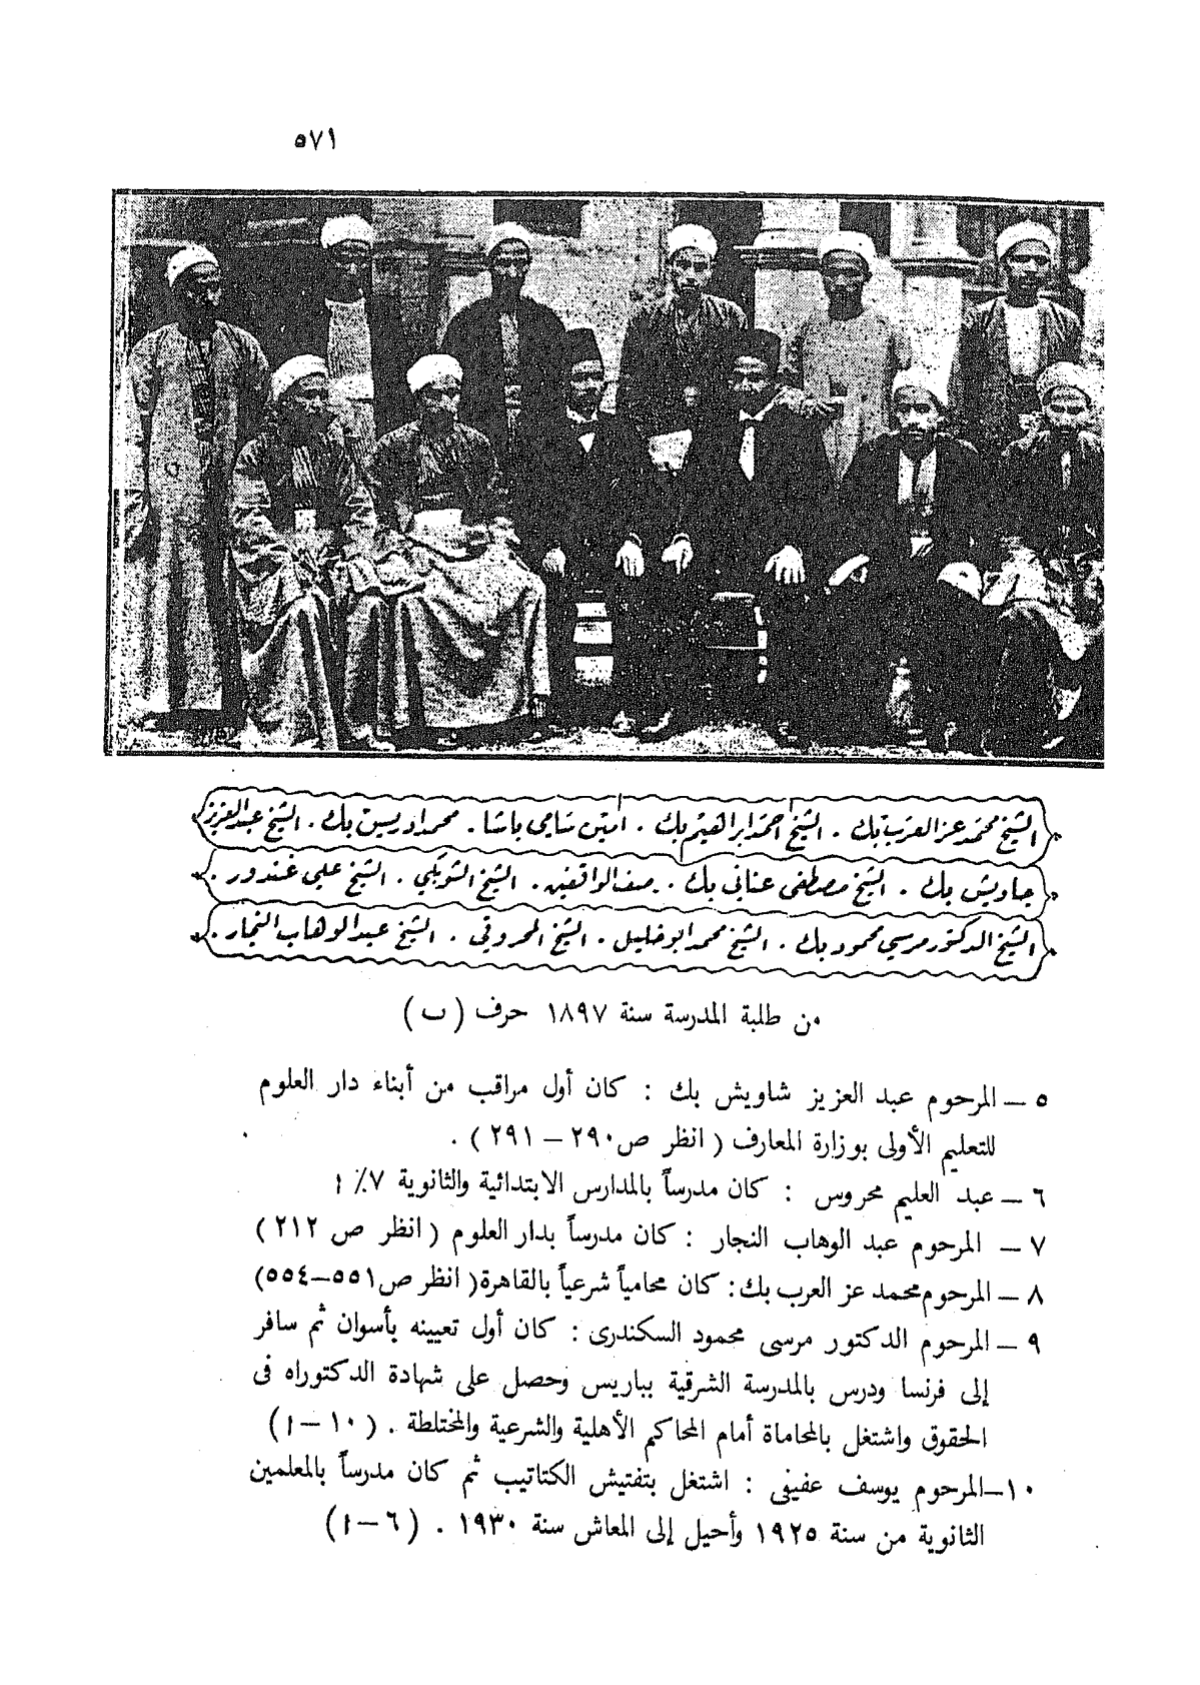 ٥٧١
الشيخ محمد عز العرب بك . الشيخ احمد ابراهيم بك . أمين سامى باشا . محمد ادريس بك . الشيخ عبد العزيز
جاويش بك . الشيخ مصطفى عنانى بك . صف الواقفين . الشيخ الشوبكي . الشيخ علي غندور .
الشيخ الدكتور مرسي محمود بك . الشيخ محمد ابو خليل . الشيخ المحروقى . الشيخ عبد الوهاب النجار .
من طلبة المدرسة سنة ١٨٩٧ حرف ( ب )
٥ — المرحوم عبد العزيز شاويش بك : كان أول مراقب من أبناء دار العلوم
للتعليم الأولى بوزارة المعارف ( انظر ص٢٩٠ – ٢٩١ ) .
٦ — عبد العليم محروس : كان مدرساً بالمدارس الابتدائية والثانوية ٧٪ ا
٧ — المرحوم عبد الوهاب النجار : كان مدرساً بدار العلوم ( انظر ص ٢١٢ )
٨ — المرحوم محمد عز العرب بك : كان محامياً شرعياً بالقاهرة ( انظر ص٥٥١–٥٥٤ )
٩ — المرحوم الدكتور مرسى محمود السكندرى : كان أول تعيينه بأسوان ثم سافر
إلى فرنسا ودرس بالمدرسة الشرقية بباريس وحصل على شهادة الدكتوراه فى
الحقوق واشتغل بالمحاماة أمام المحاكم الأهلية والشرعية والمختلطة . ( ١٠ – ا )
١٠ — المرحوم يوسف عفيفى : اشتغل بتفتيش الكتاتيب ثم كان مدرساً بالمعلمين
الثانوية من سنة ١٩٢٥ وأحيل إلى المعاش سنة ١٩٣٠ . ( ٦ – ا )